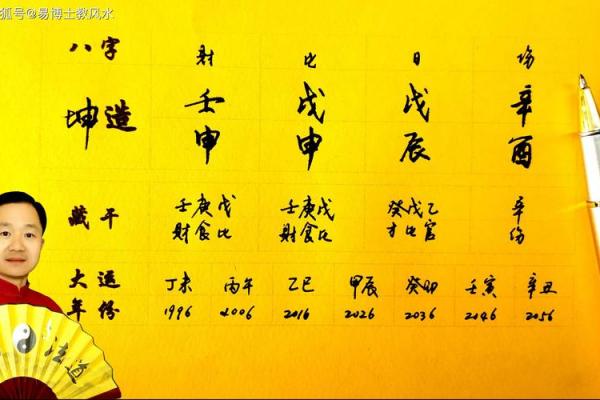 狐号@易博士教风水
八字 財 比 日 伤
坤造 壬 戊 戊 辛
申 申 辰 酉
藏干 壬庚戊 壬庚戊 癸戊乙 辛
財食比 財食比 才比官 伤
大运 丁未 丙午 乙巳 甲辰 癸卯 壬寅 辛丑
年份 1996 2006 2016 2026 2036 2046 2056
法道